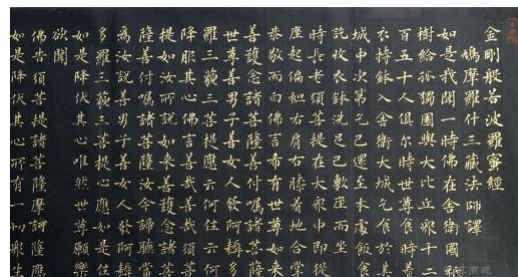 金剛般若波羅蜜經
鳩摩羅什三藏法師譯
如是我聞一時佛在舍衛國祇
樹給孤獨園與大比丘衆千二
百五十人俱爾時世尊食時著
衣持鉢入舍衛大城乞食於其
城中次第乞已還至本處飯食
訖收衣鉢洗足已敷座而坐
時長老須菩提在大衆中即從
座起偏袒右肩右膝著地合掌
恭敬而白佛言希有世尊如來
善護念諸菩薩善付囑諸菩薩
世尊善男子善女人發阿耨多
羅三藐三菩提應云何住云何
降服其心佛言善哉善哉須菩
提如汝所說如來善護念諸菩
薩善付囑諸菩薩汝今諦聽當
為汝說善男子善女人發阿耨
多羅三藐三菩提心應如是住
如是降伏其心唯然世尊願樂
欲聞
佛告須菩提諸菩薩摩訶薩應
如是降伏其心所有一切衆生